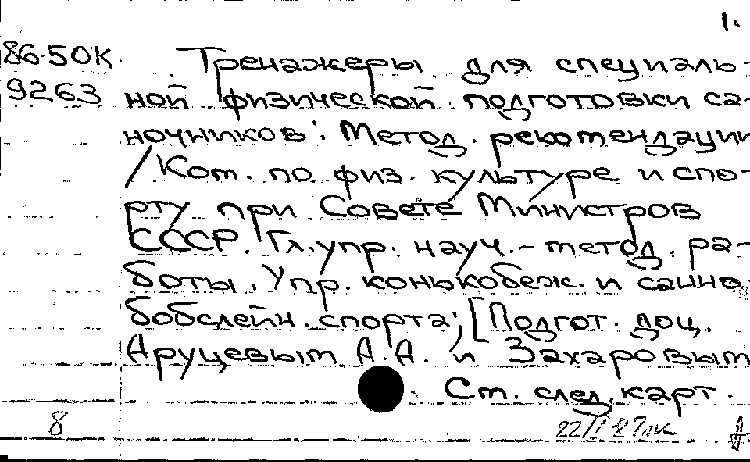 1.
86-50К. Тренажеры для специаль-
9263 ной физической подготовки са-
ночников: Метод. рекомендации
/Ком. по физ. культуре и спо-
рту при Совете Министров
СССР. Гл. упр. науч.-метод. ра-
боты. Упр. конькобеж. и санно
бобслейн. спорта; [Подгот. доц.
Аруцевым А.А. и Захаровым
. Ст. след. карт.
8